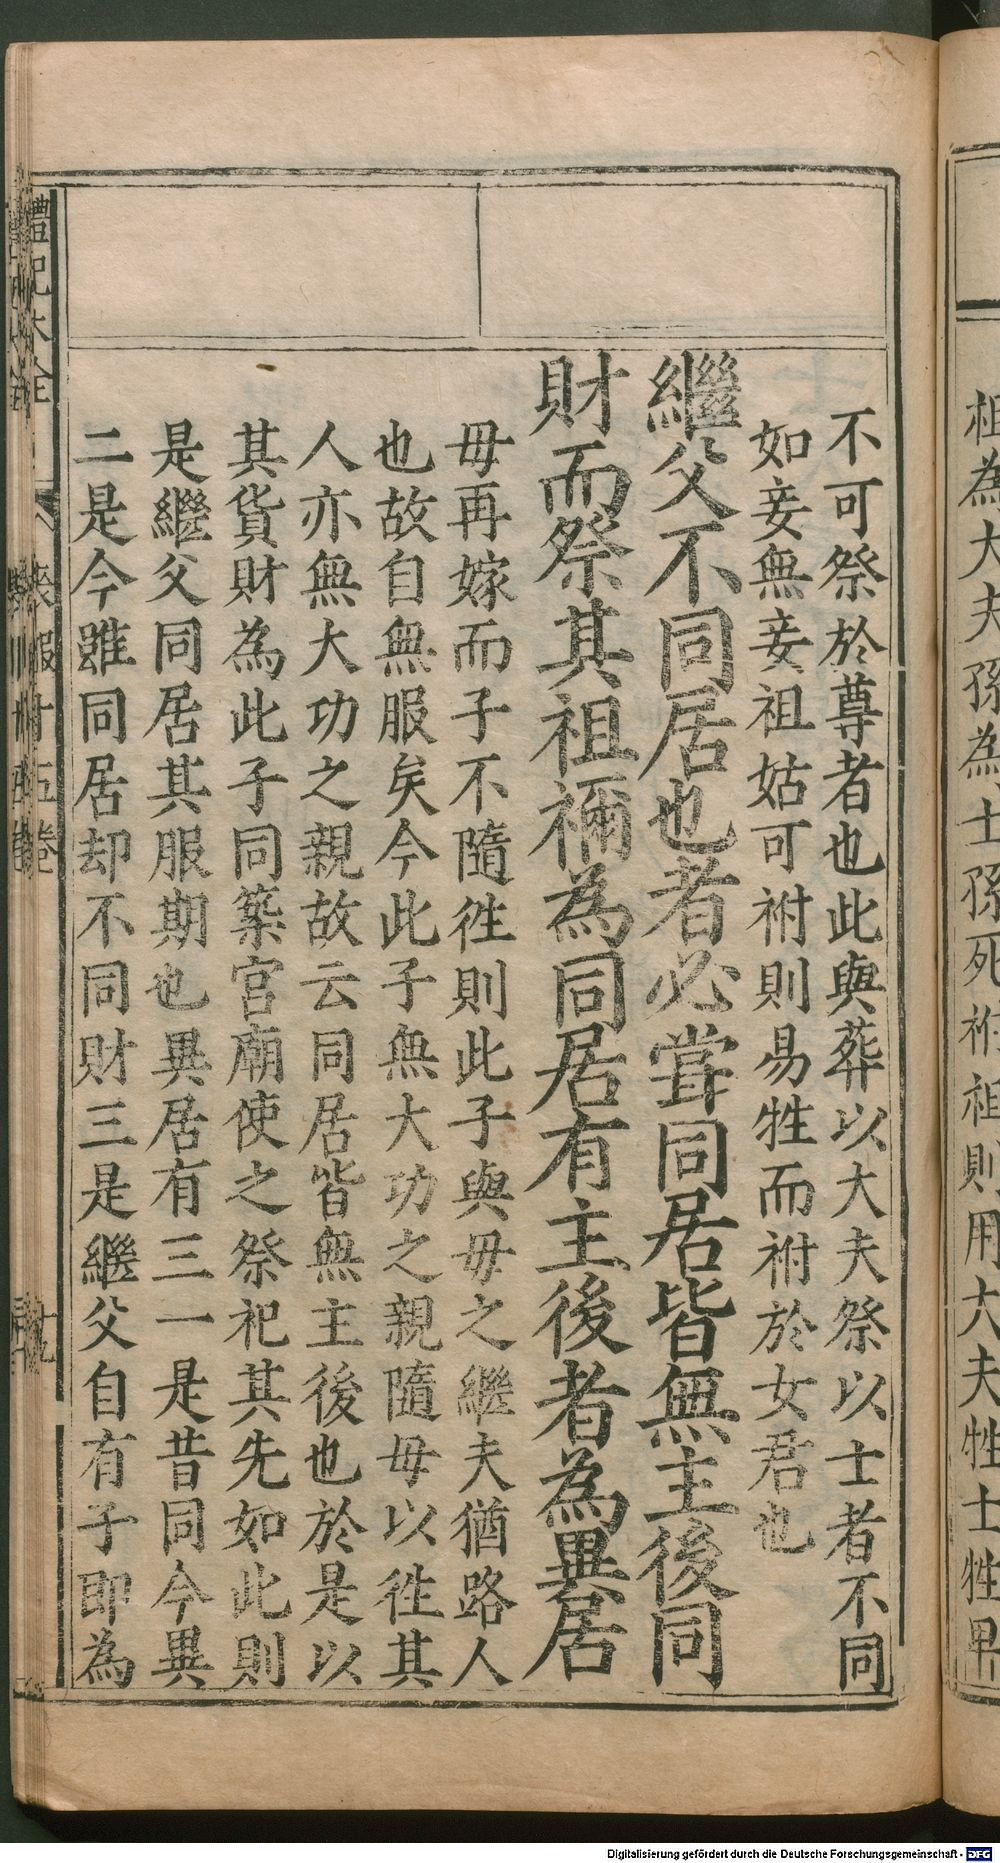 祖為大夫孫為士孫死祔祖則用大夫牲士牲卑
不可祭於尊者也此與葬以大夫祭以士者不同
如妾無妾祖姑可祔則易牲而祔於女君也
繼父不同居也者必甞同居皆無主後同
財而祭其祖禰為同居有主後者為異居
毋再嫁而子不隨徃則此子與毋之繼夫猶路人
也故自無服矣今此子無大功之親隨毋以徃其
人亦無大功之親故云同居皆無主後也於是以
其貨財為此子同築宫廟使之祭祀其先如此則
是繼父同居其服期也異居有三一是昔同今異
二是今雖同居却不同財三是繼父自有子即為
禮記大全
喪服十五卷
十九
Digitalisierung gefördert durch die Deutsche Forschungsgemeinschaft - DFG